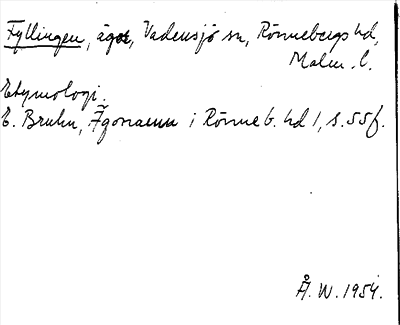 Fyllingen, ägor, Vadensjö sn, Rönnebergs hd,
Malm. l.
Etymologi.
E. Bruhn, Ägonamn i Rönneb. hd 1, s. 55 f.
Å. W. 1954.